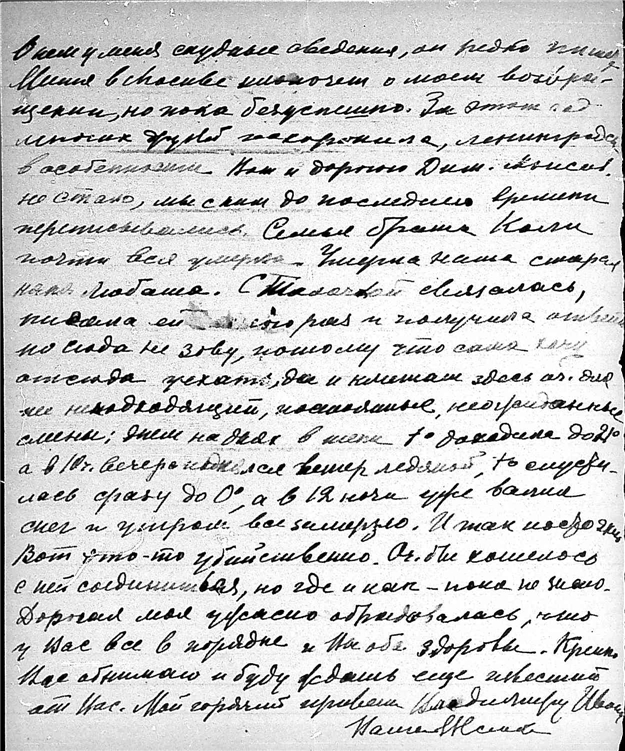 О нем у меня скудные сведения, он редко пишет
Миня в Москве хлопочет о моем возвра-
щении, но пока безуспешно. За этот год
многих друзей похоронила, ленинградск
в особенности Вот и дорогого Дим.
не стало, мы с ним до последнего времени
переписывались. Семья брата Коли
почти вся умерла. Умерла наша старая
няня Любаша. С Таночкой связалась,
писала ей и получила ответ
но сюда не зову, потому что сама хочу
отсюда уехать, да и климат здесь оч. для
нее неподходящий, постоянные, неожиданные
смены; днем на днях в тени t° доходила до 21°
а в 10 ч. вечера поднялся ветер ледяной, t° спусти-
лась сразу до 0°, а в 12 ночи уже валил
снег и утром все замерзло. И так постоянно
Вот это-то убийственно. Оч. бы хотелось
с ней соединиться, но где и как – пока не знаю.
Дорогая моя ужасно обрадовалась, что
у Вас все в порядке и Вы оба здоровы. Крепко
Вас обнимаю и буду ждать еще известий
от Вас. Мой горячий привет Владимиру Иван
Ваша